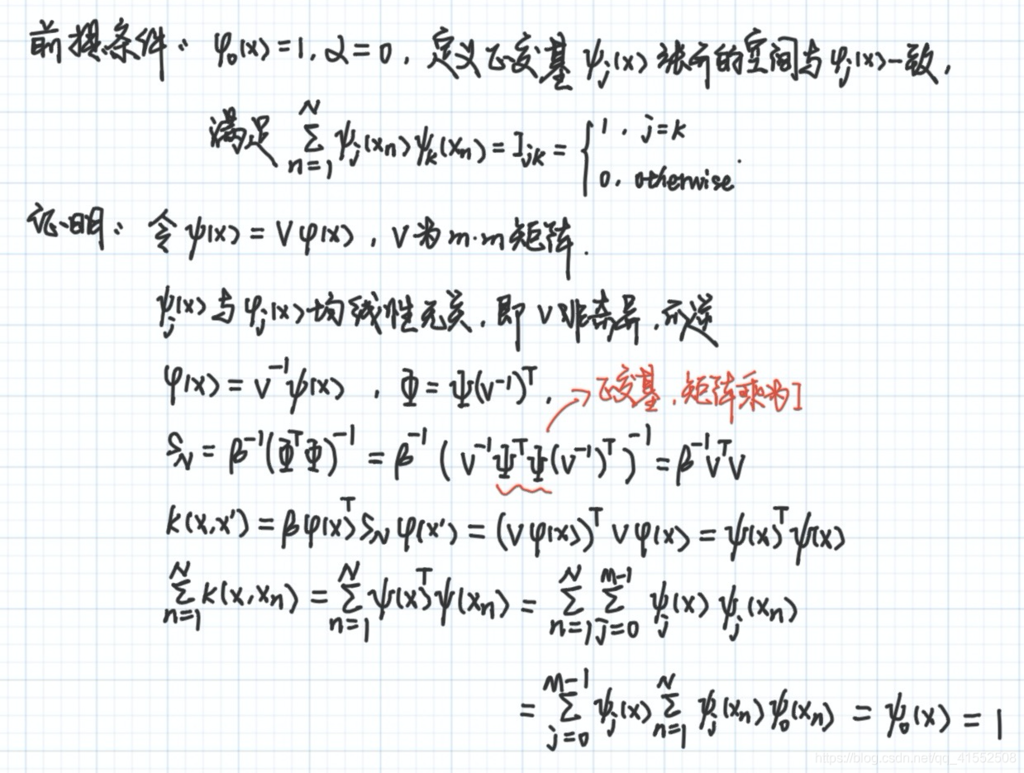 前提条件：φ₀(x)=1, α=0, 定义正交基 ψⱼ(x) 张所的空间与 φⱼ(x)一致,
满足 ∑_{n=1}^{N} ψⱼ(xₙ)ψₖ(xₙ)=Iⱼₖ= { 1, j=k
0, otherwise.
证明：令 ψ(x)=Vφ(x), V为m·m矩阵.
ψⱼ(x)与φⱼ(x)均线性无关, 即V非奇异, 可逆
φ(x)=V⁻¹ψ(x), Φ=Ψ(V⁻¹)ᵀ,
正交基, 矩阵乘为I
S_N=β⁻¹(ΦᵀΦ)⁻¹=β⁻¹(V⁻¹ΨᵀΨ(V⁻¹)ᵀ)⁻¹=β⁻¹VᵀV
k(x,x')=βφ(x)ᵀS_Nφ(x')=(Vφ(x))ᵀVφ(x)=ψ(x)ᵀψ(x)
∑_{n=1}^{N} k(x,xₙ)=∑_{n=1}^{N} ψ(x)ᵀψ(xₙ)=∑_{n=1}^{N}∑_{j=0}^{m-1} ψⱼ(x)ψⱼ(xₙ)
=∑_{j=0}^{M-1} ψⱼ(x)∑_{n=1}^{N} ψⱼ(xₙ)ψ₀(xₙ)=ψ₀(x)=1
https://blog.csdn.net/qq_41552508